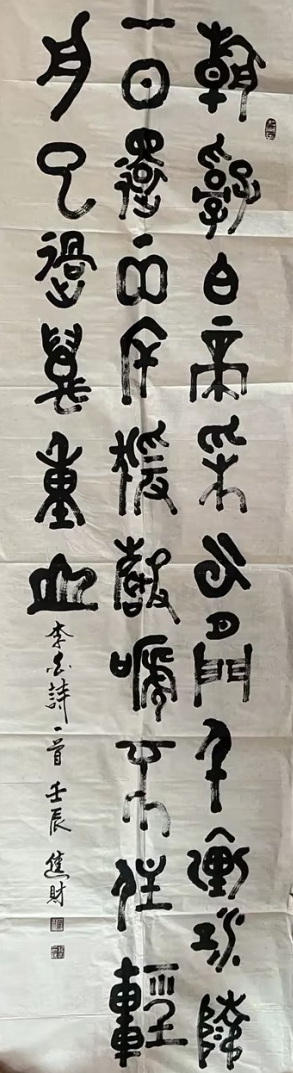 朝辭白帝采云間千里江陵
一日還兩岸猿聲啼不住輕
舟已過萬重山
李白詩一首 壬辰